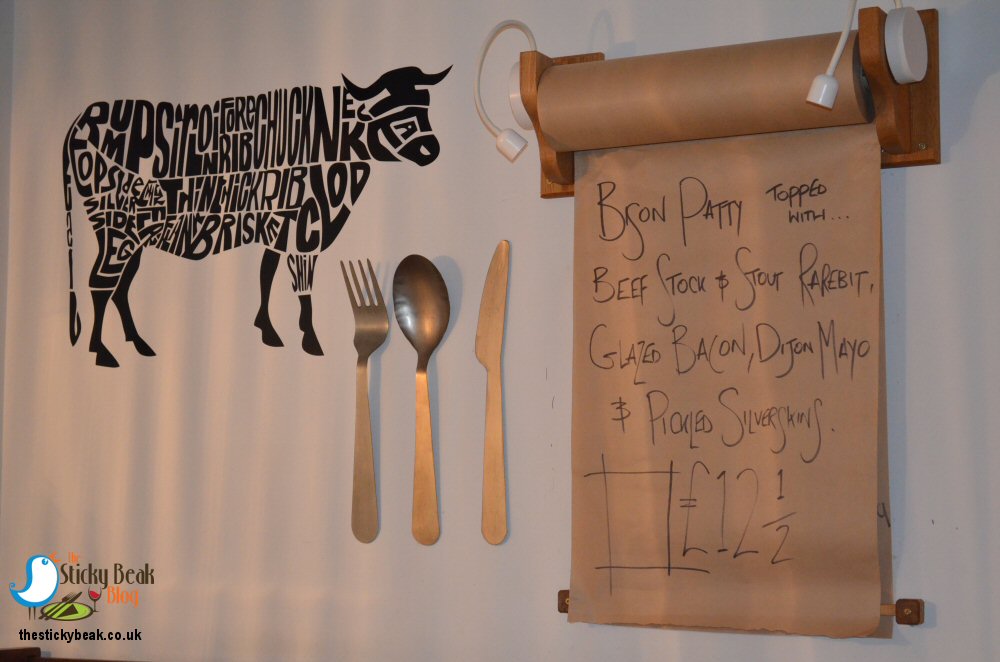 RUMP SIRLOIN FORE RIB CHUCK NECK HEAD
TOPSIDE
THIN THICK RIB CLOD
SILVERSIDE
BRISKET
LEG
SHIN
BISON PATTY TOPPED WITH...
BEEF STOCK & STOUT RAREBIT,
GLAZED BACON, DIJON MAYO
& PICKLED SILVERSKINS.
£12 1/2
the
Sticky Beak
Blog
thestickybeak.co.uk